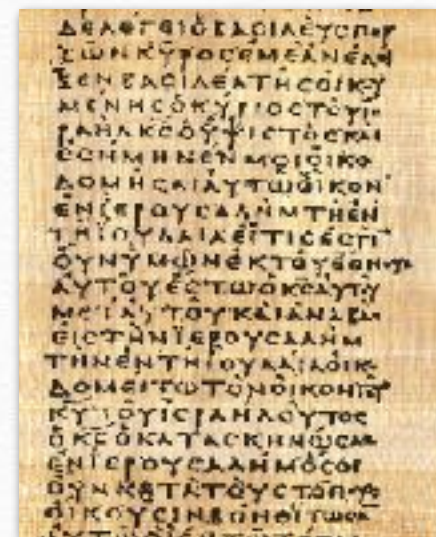 ΔΕΛΕΓΕΙΟΒΑΣΙΛΕΥΣΠΕΡ
ΣΩΝΚΥΡΟΣΕΜΕΑΝΕΔΕΙ
ΞΕΝΒΑΣΙΛΕΑΤΗΣΟΙΚΟΥ
ΜΕΝΗΣΟΚΥΡΙΟΣΤΟΥΙΣ
ΡΑΗΛΚΣΟΥΨΙΣΤΟΣΚΑΙ
ΕΣΗΜΗΝΕΝΜΟΙΟΙΚΟ
ΔΟΜΗΣΑΙΑΥΤΩΟΙΚΟΝ
ΕΝΙΕΡΟΥΣΑΛΗΜΤΗΕΝ
ΤΗΙΟΥΔΑΙΑΕΙΤΙΣΕΣΤΙ
ΟΥΝΥΜΩΝΕΚΤΟΥΕΘΝΟΥΣ
ΑΥΤΟΥΕΣΤΩΟΚΣΑΥΤΟΥ
ΜΕΤΑΥΤΟΥΚΑΙΑΝΑΒΑΣ
ΕΙΣΤΗΝΙΕΡΟΥΣΑΛΗΜ
ΤΗΝΕΝΤΗΙΟΥΔΑΙΑΟΙΚΟ
ΔΟΜΕΙΤΩΤΟΝΟΙΚΟΝΤΟΥ
ΚΥΙΟΥΙΣΡΑΗΛΟΥΤΟΣ
ΟΚΣΟΚΑΤΑΣΚΗΝΩΣΑΣ
ΕΝΙΕΡΟΥΣΑΛΗΜΟΣΟΙ
ΟΥΝΚΑΤΑΤΟΥΣΤΟΠΟΥΣ
ΟΙΚΟΥΣΙΝΒΟΗΘΙΤΩΣΑΝ